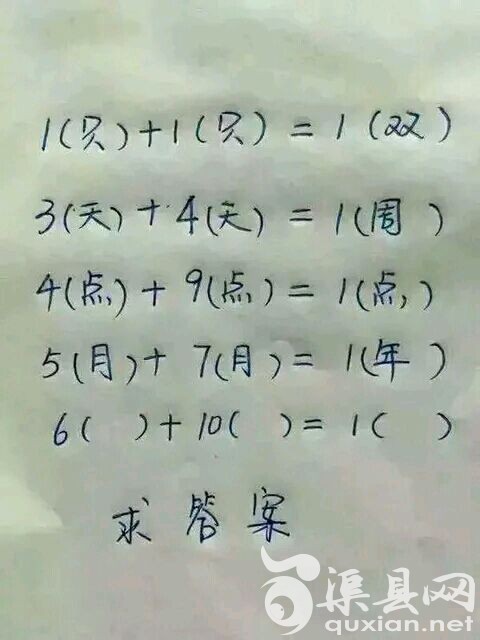 1(只)+1(只)=1(双)
3(天)+4(天)=1(周)
4(点)+9(点)=1(点)
5(月)+7(月)=1(年)
6( )+10( )=1( )
求答案
渠县网
quxian.net